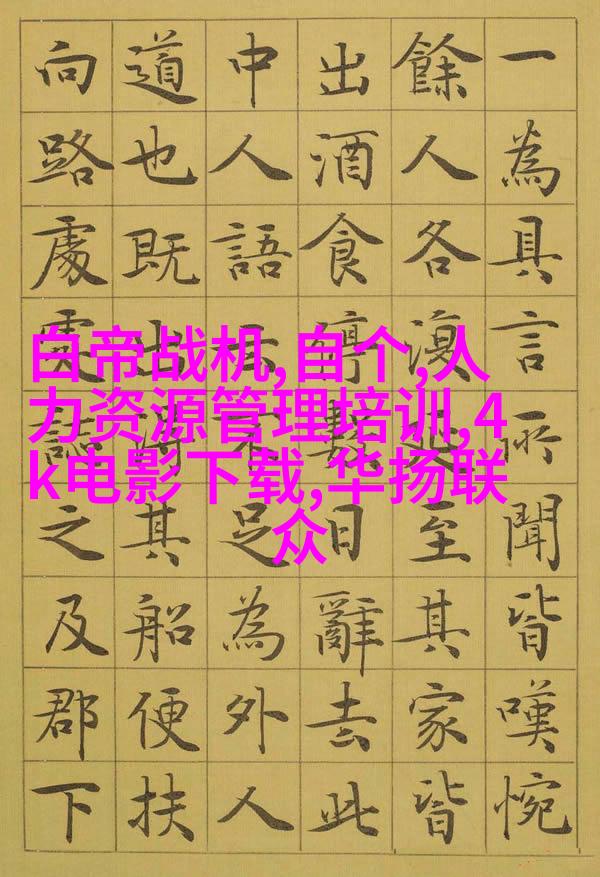 一為具言所聞皆嘆惋
餘人各復延至其家皆
出酒食停數日辭去此
中人語云不足為外人
道也既出得其船便扶
向路處處誌之及郡下
白帝战机,自个,人
力资源管理培训,4
k电影下载,华扬联
众